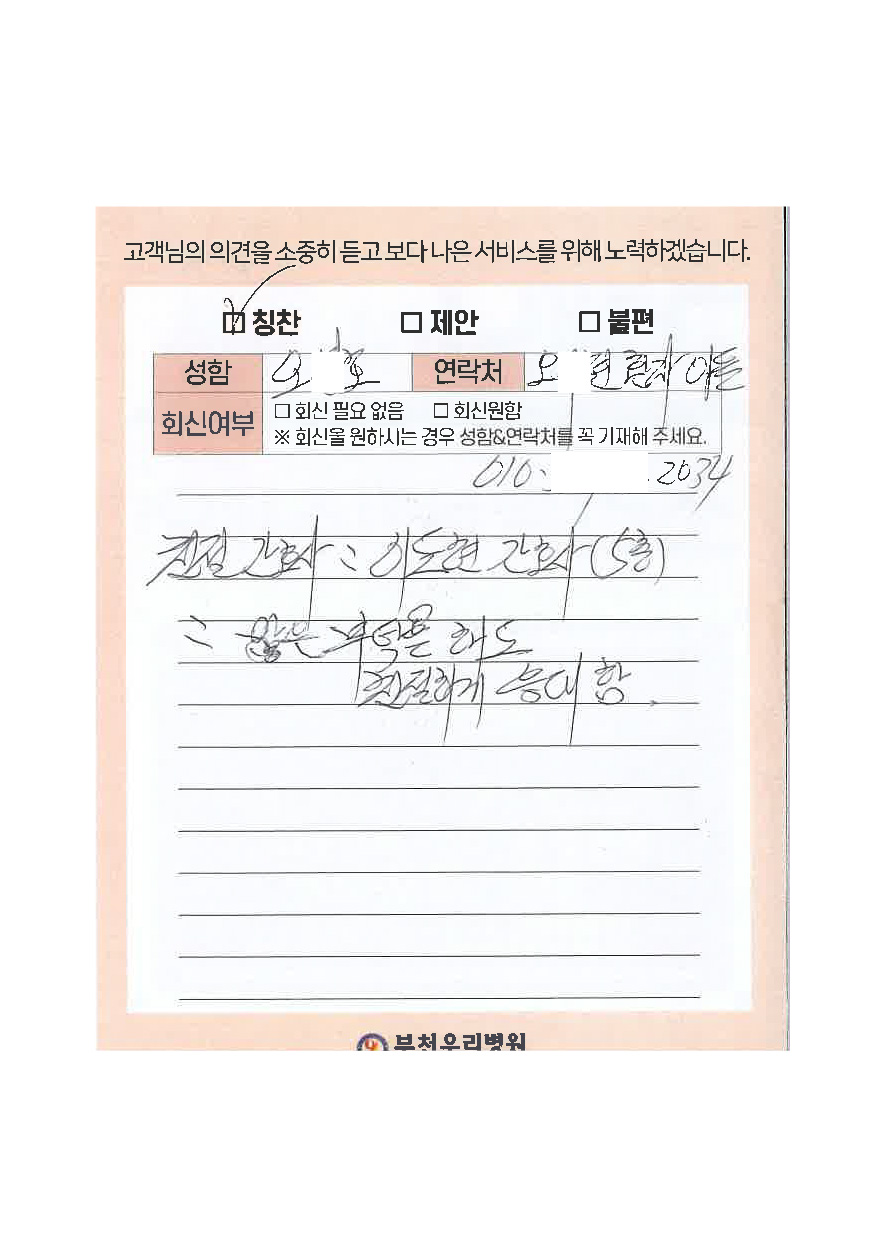 고객님의 의견을 소중히 듣고 보다 나은 서비스를 위해 노력하겠습니다.
☐ 칭찬 ☐ 제안 ☐ 불편
성함 오 호 연락처 오 환자 아들
회신여부 ☐ 회신 필요 없음 ☐ 회신원함
※ 회신을 원하시는 경우 성함&연락처를 꼭 기재해 주세요.
010. .2034
친절 간호사 : 이도현 간호사 (5층)
: 많은 부탁을 해도
친절하게 응대 함.
부천우리병원